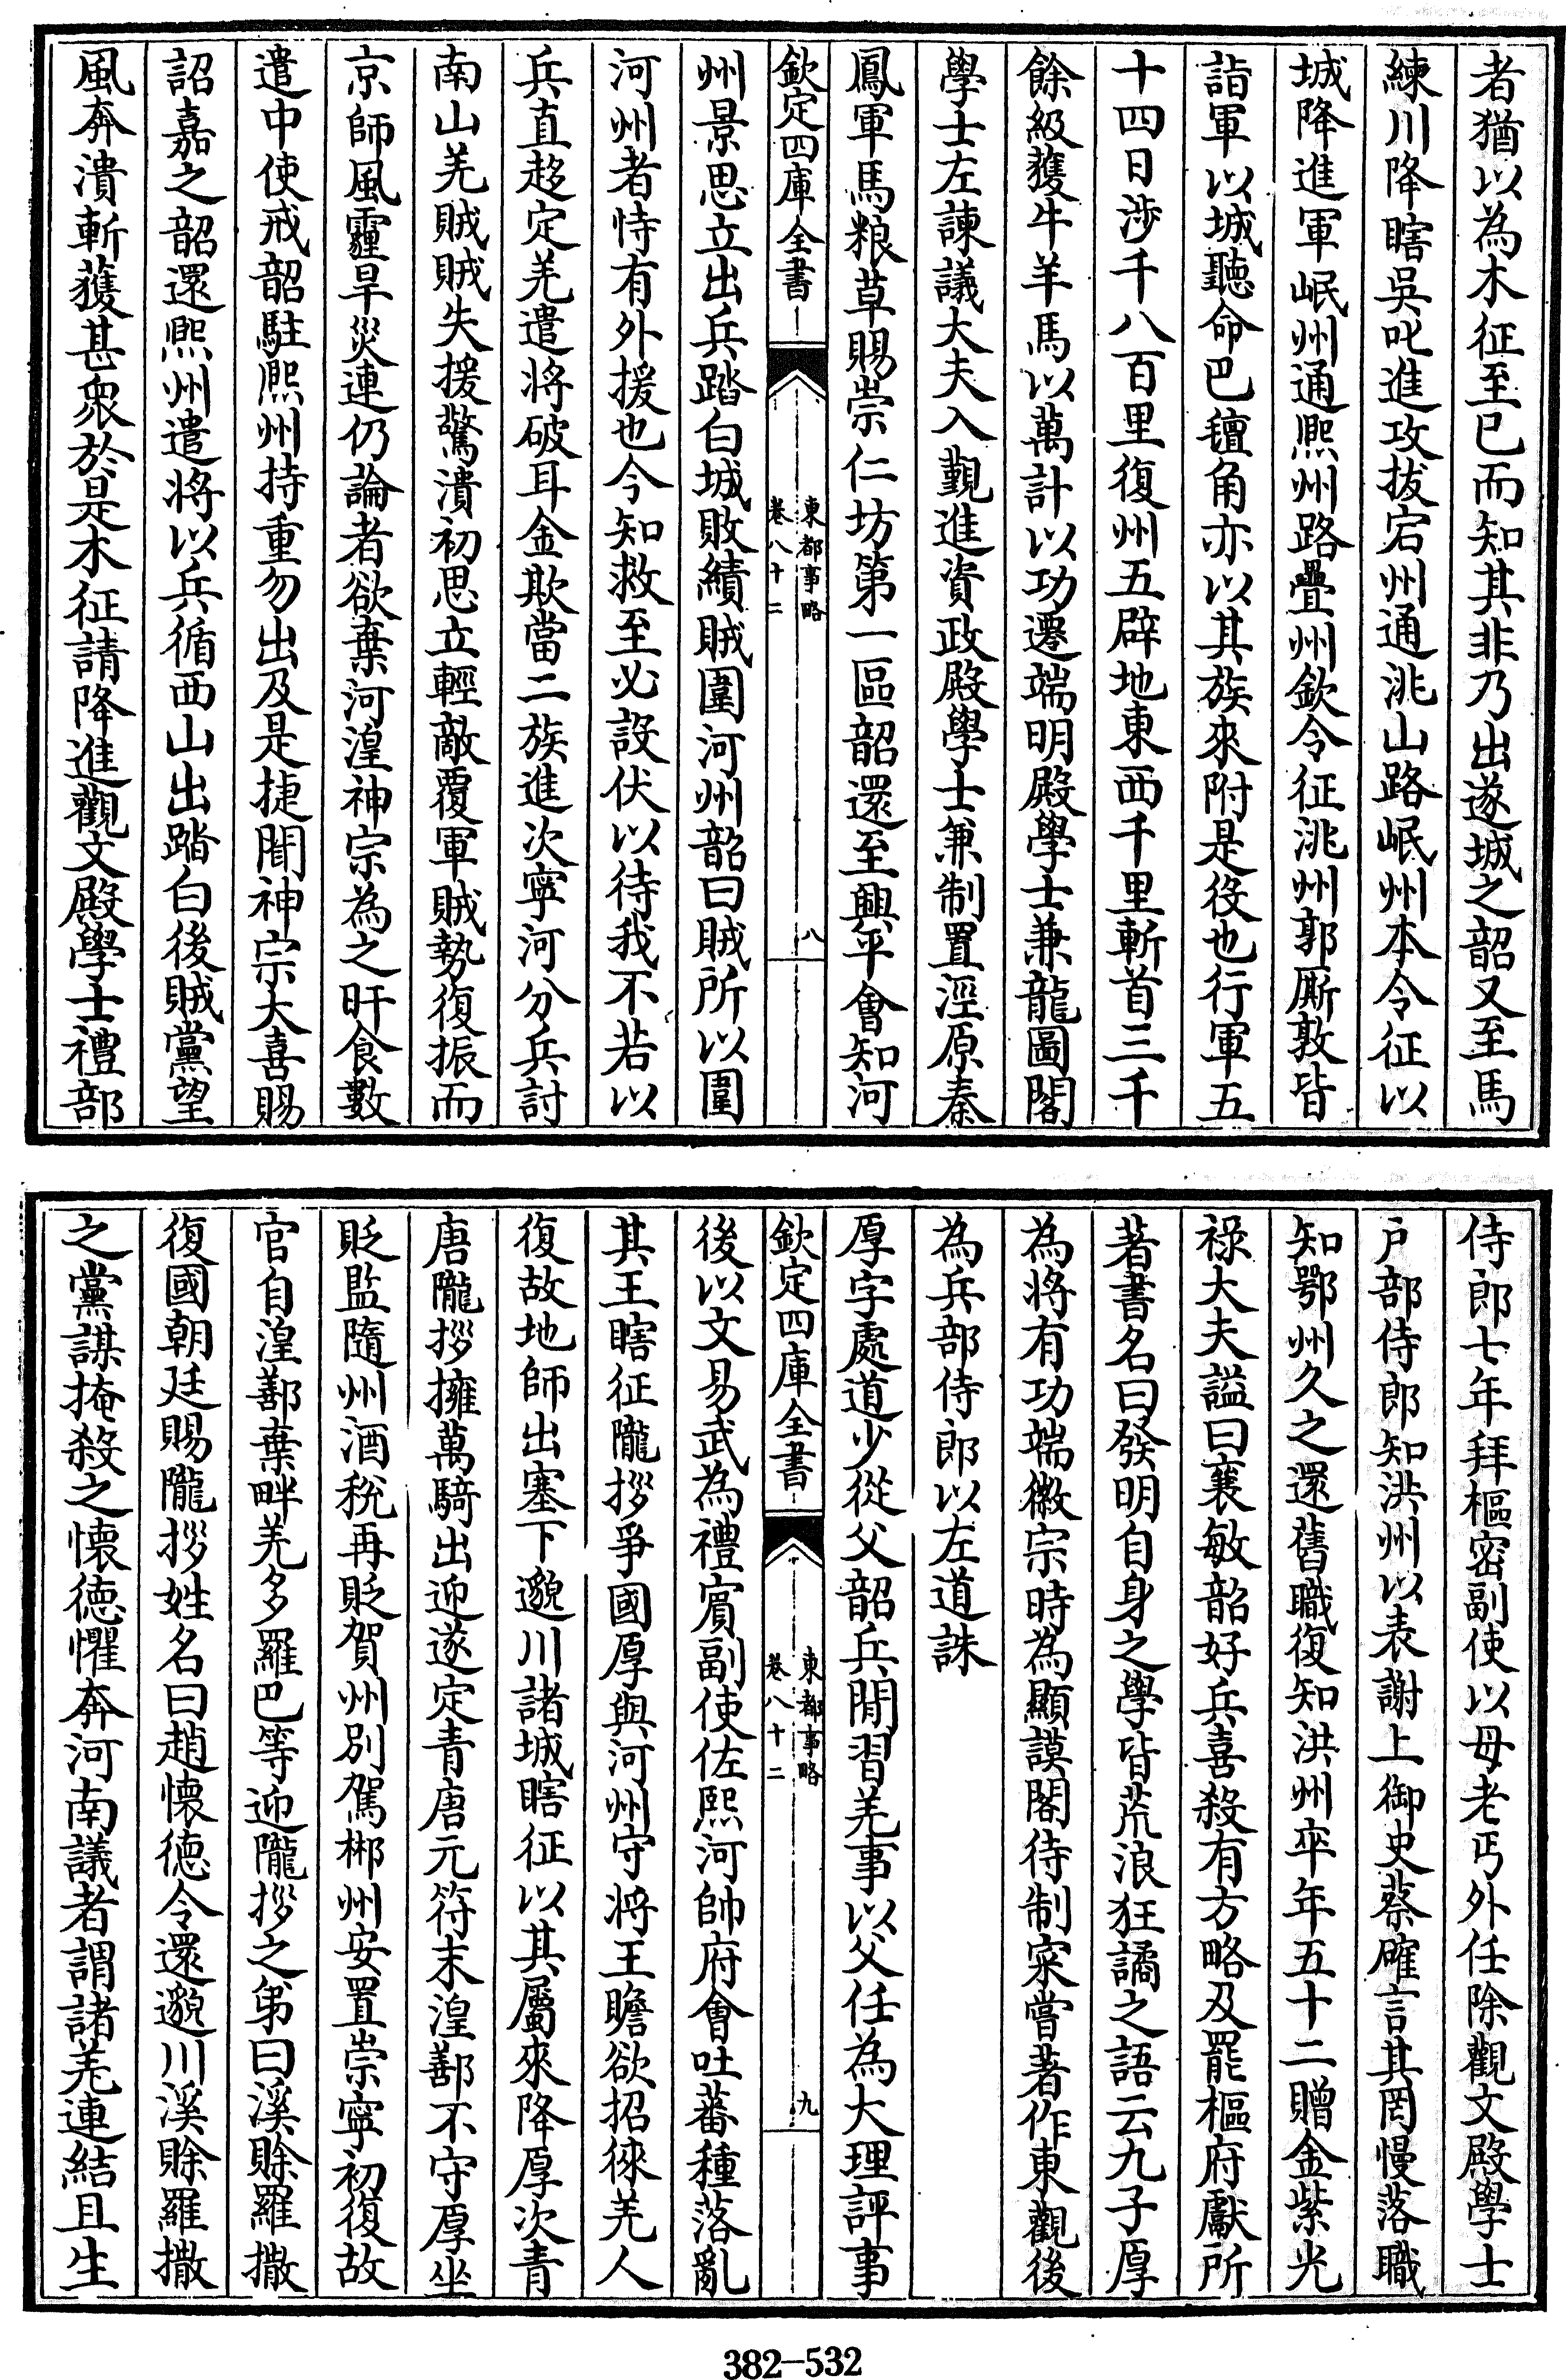 者猶以為木征至已而知其非乃出遂城之韶又至馬
練川降瞎吳叱進攻拔宕州通洮山路岷州本令征以
城降進軍岷州通熈州路疊州欽令征洮州郭厮敦皆
詣軍以城聽命巴氊角亦以其族來附是役也行軍五
十四日涉千八百里復州五辟地東西千里斬首三千
餘級獲牛羊馬以萬計以功遷端明殿學士兼龍圖閣
學士左諫議大夫入覲進資政殿學士兼制置涇原秦
鳳軍馬粮草賜崇仁坊第一區韶還至興平會知河
欽定四庫全書
東都事略
卷八十二
八
州景思立出兵踏白城敗績賊圍河州韶曰賊所以圍
河州者恃有外援也今知救至必設伏以待我不若以
兵直趍定羌遣将破耳金欺當二族進次寧河分兵討
南山羌賊賊失援驚潰初思立輕敵覆軍賊勢復振而
京師風霾旱災連仍論者欲棄河湟神宗為之旰食數
遣中使戒韶駐熈州持重勿出及是捷聞神宗大喜賜
詔嘉之韶還熈州遣将以兵循西山出踏白後賊黨望
風奔潰斬獲甚衆於是木征請降進觀文殿學士禮部
侍郎七年拜樞密副使以母老丐外任除觀文殿學士
户部侍郎知洪州以表謝上御史蔡確言其罔慢落職
知鄂州久之還舊職復知洪州卒年五十二贈金紫光
祿大夫謚曰襄敏韶好兵喜殺有方略及罷樞府獻所
著書名曰發明自身之學皆荒浪狂譎之語云九子厚
為将有功端徽宗時為顯謨閣待制寀嘗著作東觀後
為兵部侍郎以左道誅
厚字處道少從父韶兵間習羌事以父任為大理評事
欽定四庫全書
東都事略
卷八十二
九
後以文易武為禮賓副使佐熙河帥府會吐蕃種落亂
其王瞎征隴拶爭國厚與河州守将王贍欲招徠羌人
復故地師出塞下邈川諸城瞎征以其屬來降厚次青
唐隴拶擁萬騎出迎遂定青唐元符末湟鄯不守厚坐
貶監隨州酒稅再貶賀州别駕郴州安置崇寧初復故
官自湟鄯棄畔羌多羅巴等迎隴拶之弟曰溪賒羅撒
復國朝廷賜隴拶姓名曰趙懷徳令還邈川溪賒羅撒
之黨謀掩殺之懷徳懼奔河南議者謂諸羌連結且生
382-532